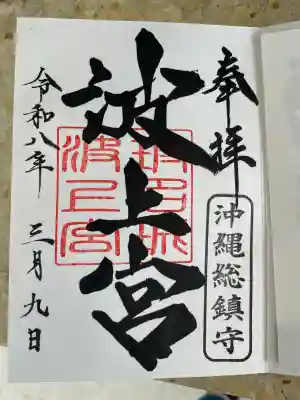 奉拝
沖縄総鎮守
波上宮
令和八年 三月九日